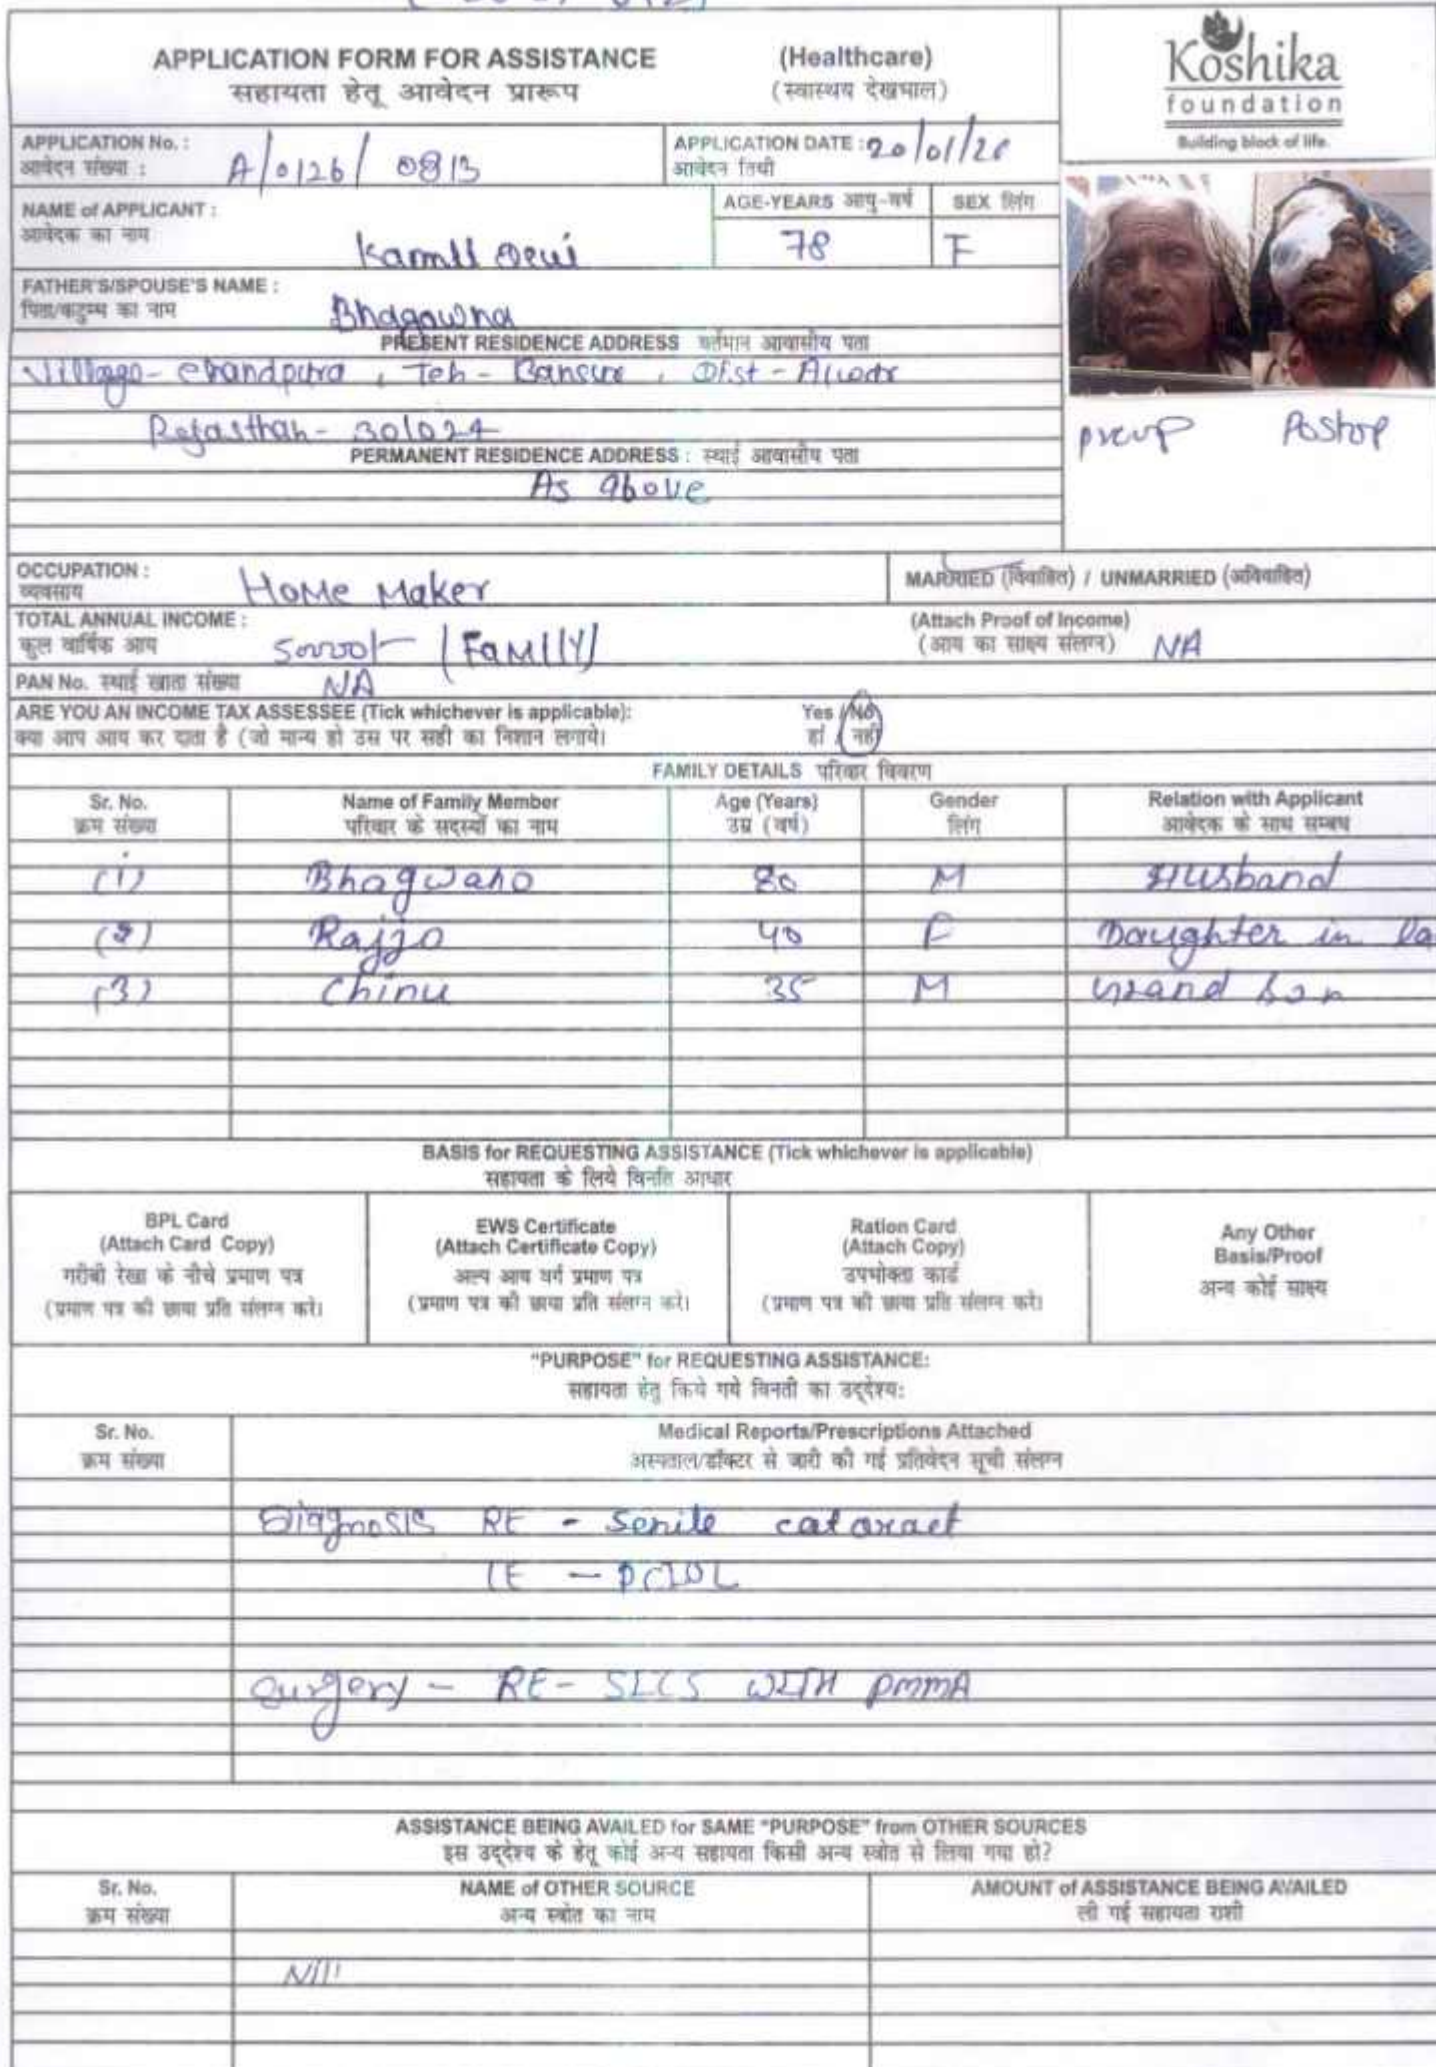 APPLICATION FORM FOR ASSISTANCE (Healthcare)
सहायता हेतू आवेदन प्रारूप (स्वास्थय देखभाल)
Koshika
foundation
Building block of life.
APPLICATION No. : A/0126/0813
आवेदन संख्या :
APPLICATION DATE : 20/01/26
आवेदन तिथी
NAME of APPLICANT :
आवेदक का नाम
AGE-YEARS आयु-वर्ष
78
SEX लिंग
F
FATHER'S/SPOUSE'S NAME :
पिता/कटुम्ब का नाम
PRESENT RESIDENCE ADDRESS वर्तमान आवासीय पता
Village - Chandpura , Teh - Bansur , Dist -
Rajasthan - 301024
preop Postop
PERMANENT RESIDENCE ADDRESS : स्थाई आवासीय पता
As above
OCCUPATION : Home Maker
व्यवसाय
MARRIED (विवाहित) / UNMARRIED (अविवाहित)
TOTAL ANNUAL INCOME :
कुल वार्षिक आय (FAMILY)
(Attach Proof of Income)
(आय का साक्ष्य संलग्न) NA
PAN No. स्थाई खाता संख्या NA
ARE YOU AN INCOME TAX ASSESSEE (Tick whichever is applicable): Yes / No
क्या आप आय कर दाता है (जो मान्य हो उस पर सही का निशान लगाये। हां / नहीं
FAMILY DETAILS परिवार विवरण
Sr. No. Name of Family Member Age (Years) Gender Relation with Applicant
क्रम संख्या परिवार के सदस्यों का नाम उम्र (वर्ष) लिंग आवेदक के साथ सम्बध
(1) Bhagwano 80 M Husband
(2) Rajjo 40 F Daughter in la
(3) Chinu 35 M Grand Son
BASIS for REQUESTING ASSISTANCE (Tick whichever is applicable)
सहायता के लिये विनति आधार
BPL Card
(Attach Card Copy)
गरीबी रेखा के नीचे प्रमाण पत्र
(प्रमाण पत्र की छाया प्रति संलग्न करे।
EWS Certificate
(Attach Certificate Copy)
अल्प आय वर्ग प्रमाण पत्र
(प्रमाण पत्र की छाया प्रति संलग्न करे।
Ration Card
(Attach Copy)
उपभोक्ता कार्ड
(प्रमाण पत्र की छाया प्रति संलग्न करे।
Any Other
Basis/Proof
अन्य कोई साक्ष्य
"PURPOSE" for REQUESTING ASSISTANCE:
सहायता हेतु किये गये विनती का उद्देश्य:
Sr. No. Medical Reports/Prescriptions Attached
क्रम संख्या अस्पताल/डॉक्टर से जारी की गई प्रतिवेदन सूची संलग्न
Diagnosis RE - Senile cataract
LE - PCIOL
Surgery - RE - SICS WITH PMMA
ASSISTANCE BEING AVAILED for SAME "PURPOSE" from OTHER SOURCES
इस उद्देश्य के हेतू कोई अन्य सहायता किसी अन्य स्त्रोत से लिया गया हो?
Sr. No. NAME of OTHER SOURCE AMOUNT of ASSISTANCE BEING AVAILED
क्रम संख्या अन्य स्त्रोत का नाम ली गई सहायता राशी
Nill